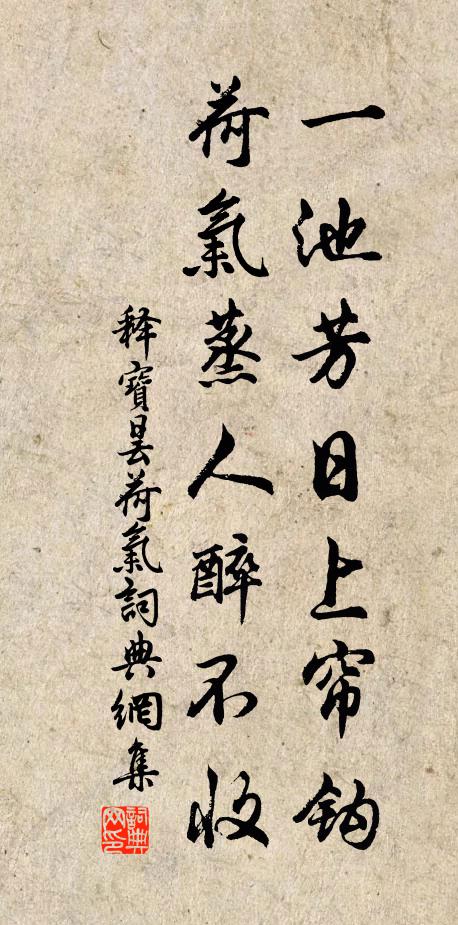 一池芳日上帘钩
荷氣蒸人醉不收
释寶昙荷氣詞典網集
詞典网印